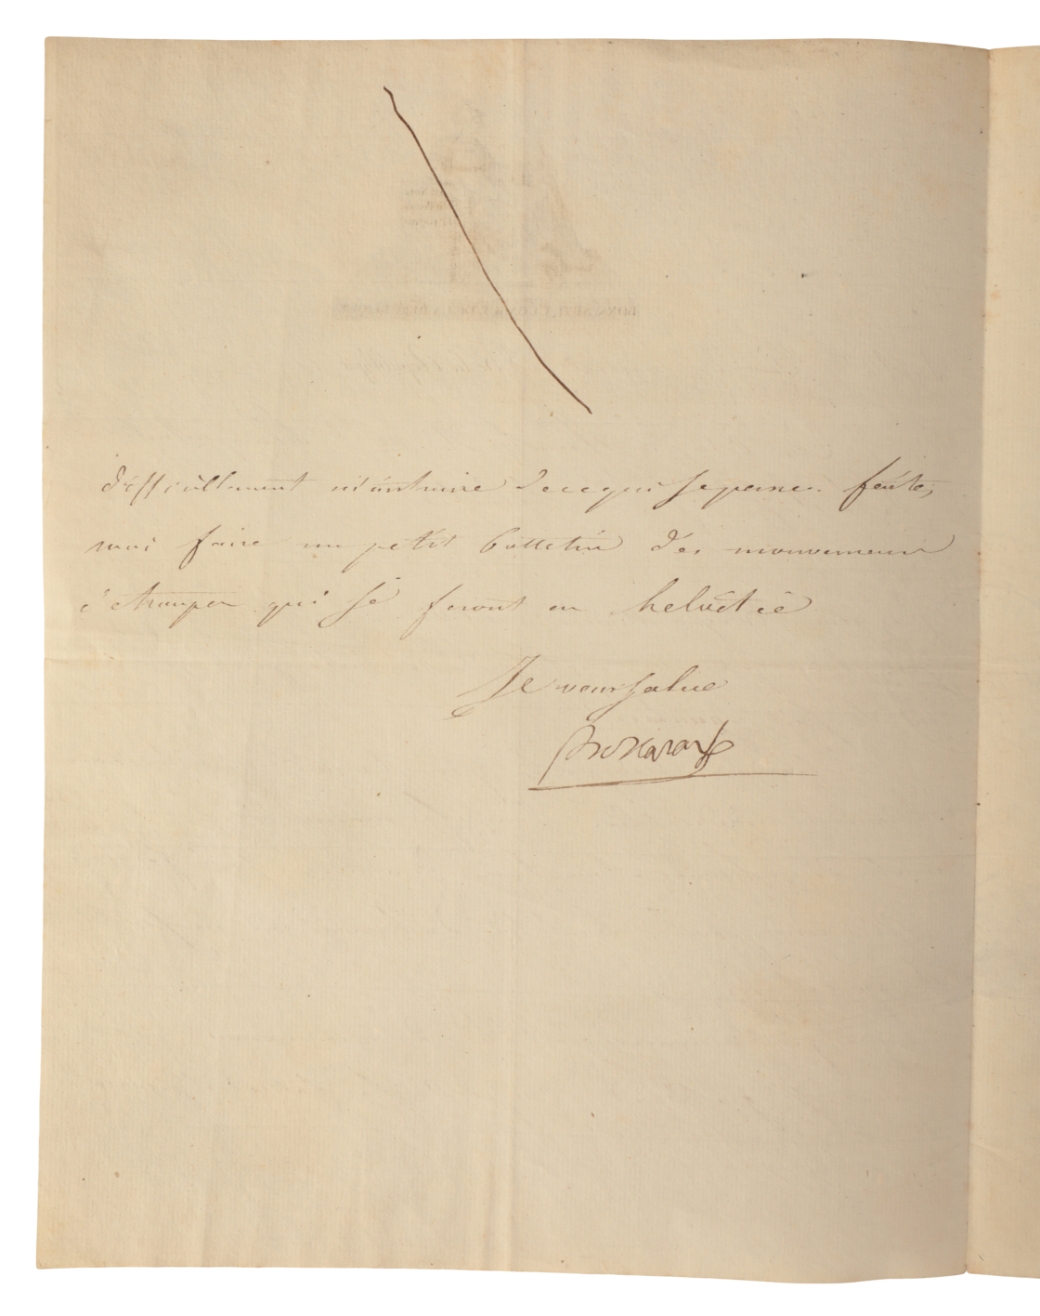 difficilement m'instruire de ce qui se passe. faites
moi faire un petit bulletin des mouvemens
de troupes qui se feront en helvétie
Je vous salue
Bonaparte